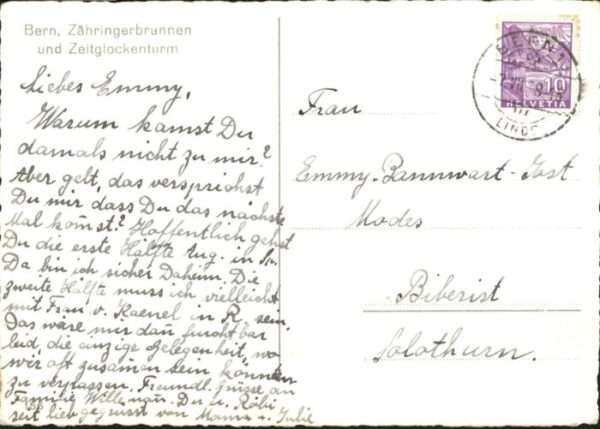 Bern, Zähringerbrunnen
und Zeitglockenturm
Liebes Emmy,
Warum kamst Du
damals nicht zu mir?
Aber gelt, das versprichst
Du mir dass Du das nächste
Mal kom̄st? Hoffentlich gehst
Du die erste Hälfte Aug. in
Da bin ich sicher Daheim. Die
zweite Hälfte muss ich vielleicht
mit Frau v. Haenel in R. sein.
Das wäre mir dan̄ furchtbar
leid, die einzige Gelegenheit, wo
wir oft zusam̄en sein kön̄en
zu verpassen. Freundl. Grüsse an
Familie Willenau. Du u. Röbi
seit lieb gegrüsst von Mama u. Julie
BERN 1
LINDE
10
HELVETIA
Frau
Emmy-Bannwart-Jost
Modes
Biberist
Solothurn.